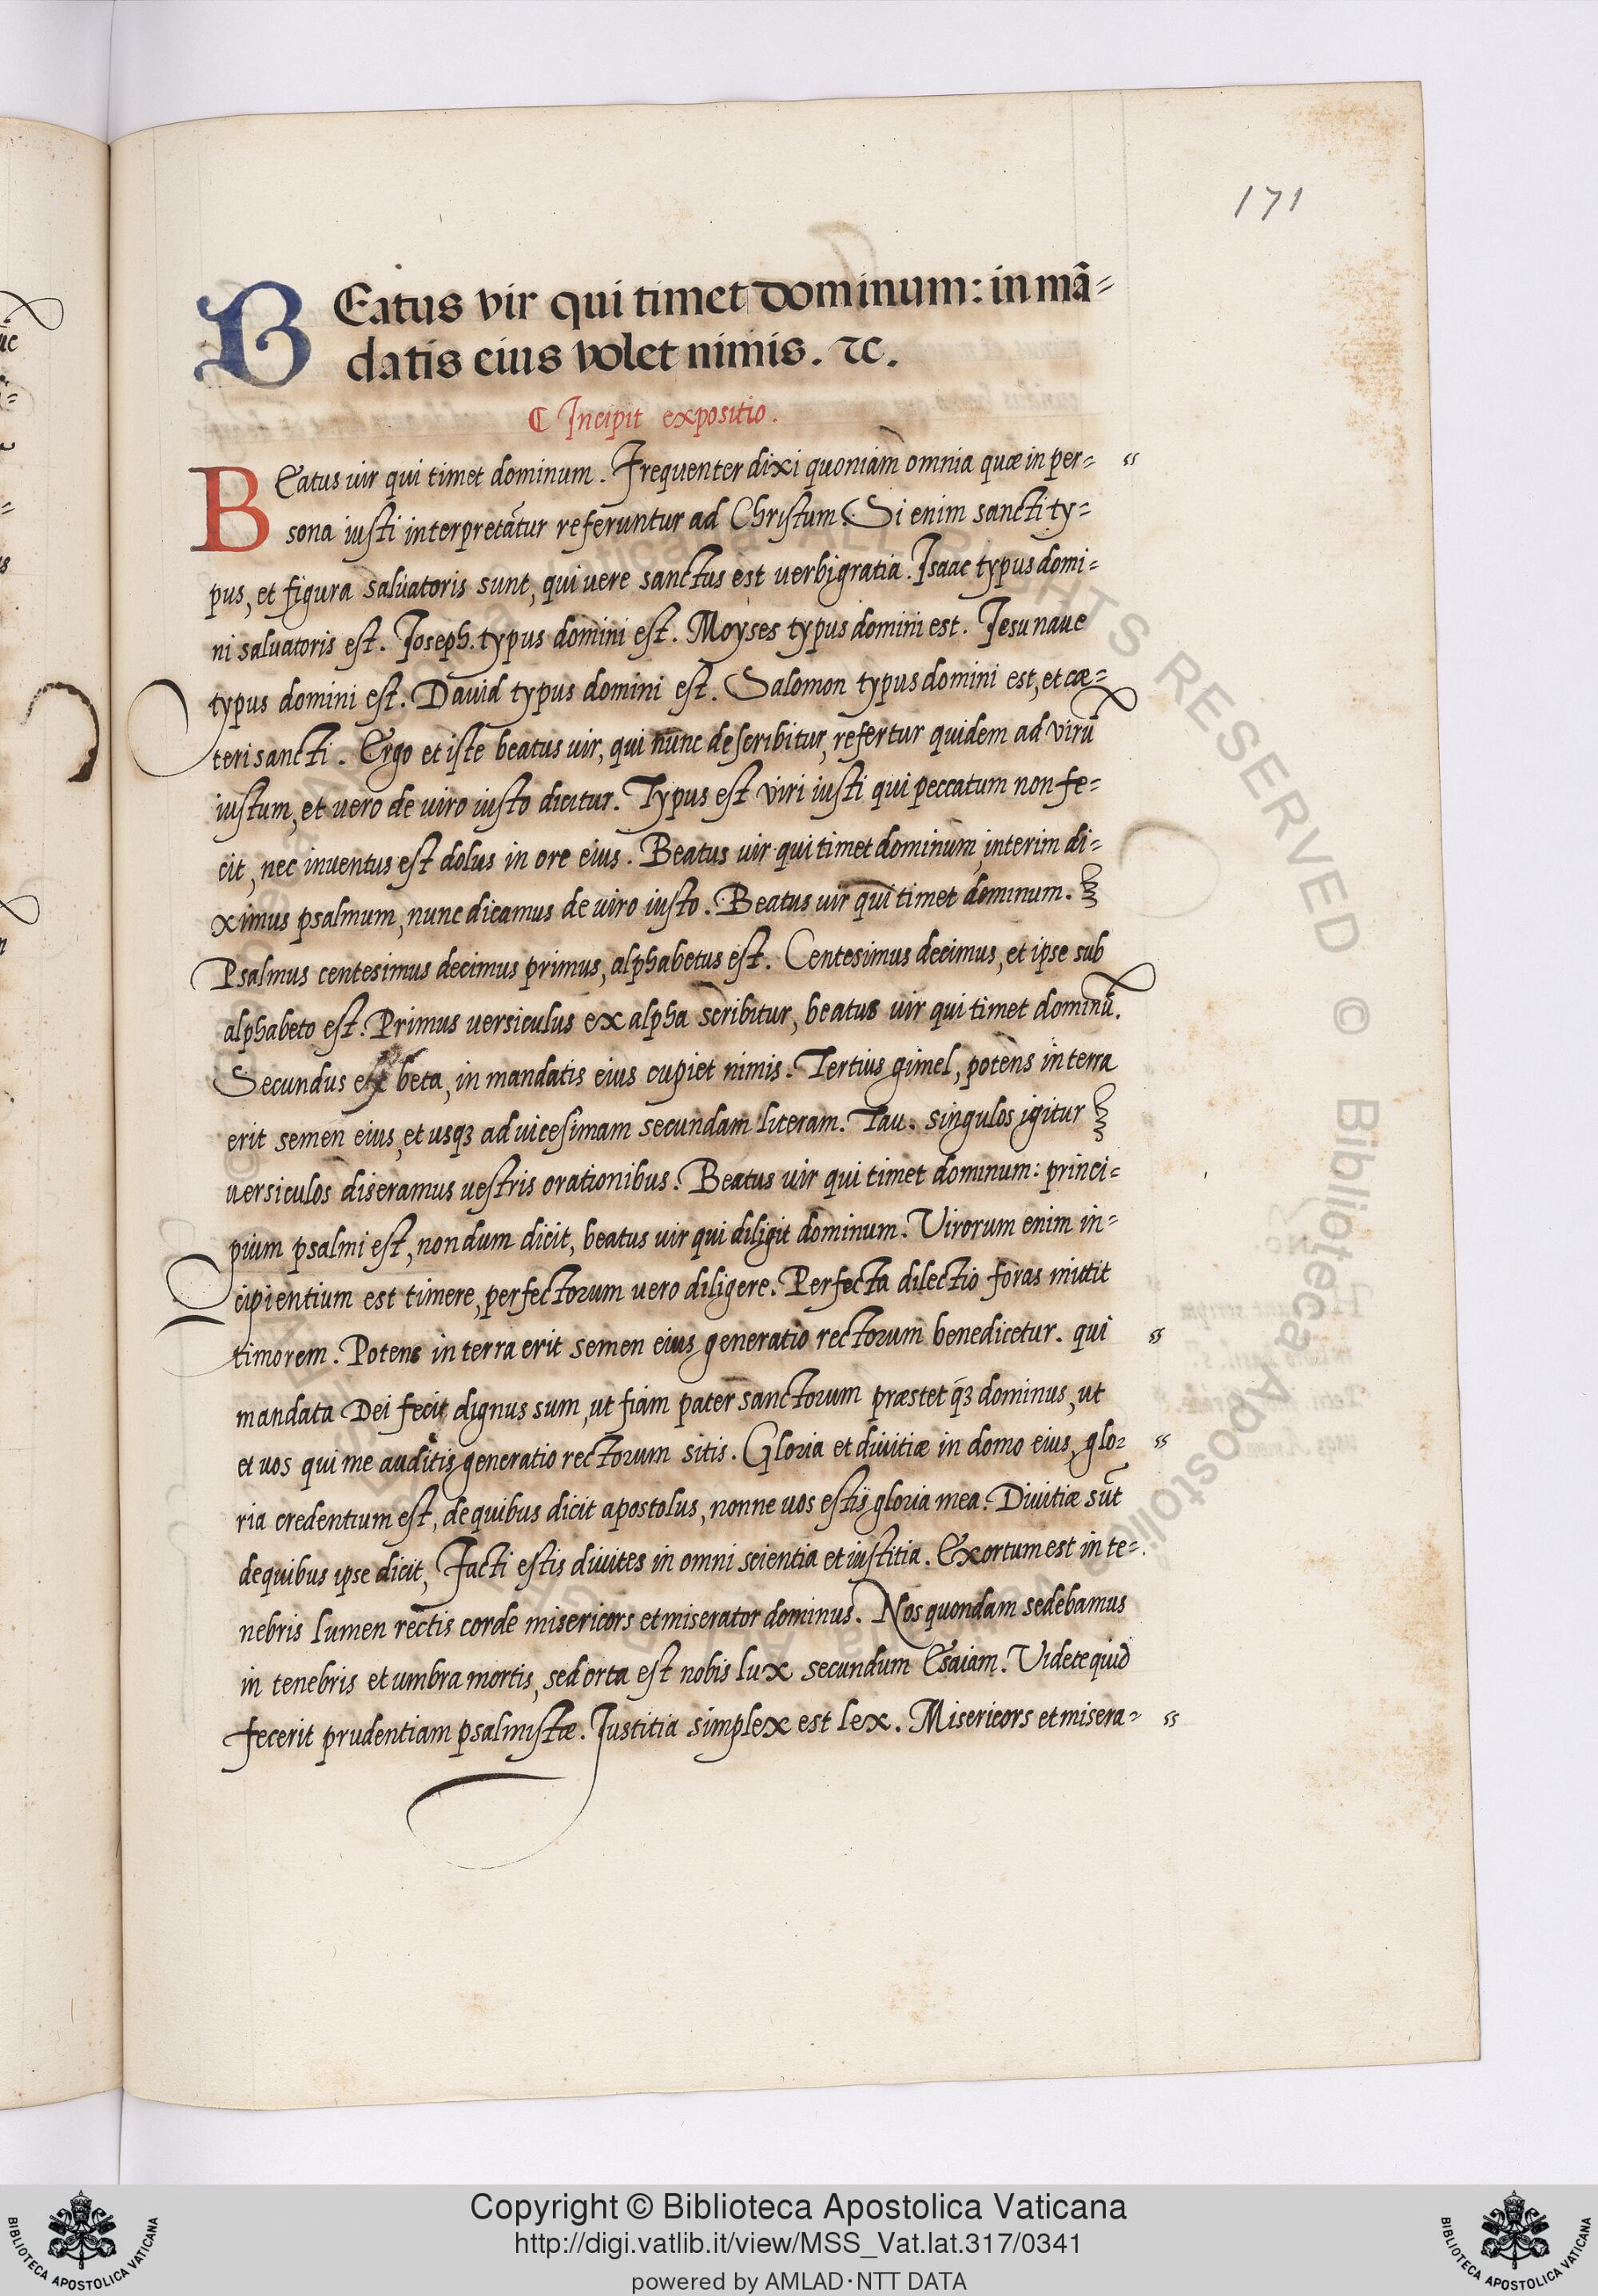 171
BEatus vir qui timet dominum: in mã=
datis eius volet nimis. ⁊c.
¶ Incipit expositio.
BEatus uir qui timet dominum. Frequenter dixi quoniam omnia quæ in per=
sona iusti interpretãtur referuntur ad Christum. Si enim sancti ty=
pus, et figura saluatoris sunt, qui uere sanctus est uerbigratia. Isaac typus domi=
ni saluatoris est. Ioseph. typus domini est. Moyses typus domini est. Iesu naue
typus domini est. Dauid typus domini est. Salomon typus domini est, et cæ=
teri sancti. Ergo et iste beatus uir, qui nunc describitur, refertur quidem ad virũ
iustum, et uero de uiro iusto dicitur. Typus est viri iusti qui peccatum non fe=
cit, nec inuentus est dolus in ore eius. Beatus uir qui timet dominum, interim di=
ximus psalmum, nunc dicamus de uiro iusto. Beatus uir qui timet dominum.
Psalmus centesimus decimus primus, alphabetus est. Centesimus decimus, et ipse sub
alphabeto est. Primus uersiculus ex alpha scribitur, beatus uir qui timet dominũ.
Secundus ex beta, in mandatis eius cupiet nimis. Tertius gimel, potens in terra
erit semen eius, et usqꝫ ad uicesimam secundam literam. Tau. singulos igitur
uersiculos diseramus uestris orationibus. Beatus uir qui timet dominum: princi=
pium psalmi est, nondum dicit, beatus uir qui diligit dominum. Virorum enim in=
cipientium est timere, perfectorum uero diligere. Perfecta dilectio foras mittit
timorem. Potens in terra erit semen eius generatio rectorum benedicetur. qui
mandata Dei fecit dignus sum, ut fiam pater sanctorum præstet qꝫ dominus, ut
et uos qui me auditis generatio rectorum sitis. Gloria et diuitiæ in domo eius, glo=
ria credentium est, de quibus dicit apostolus, nonne uos estis gloria mea. Diuitiæ sũt
de quibus ipse dicit, Facti estis diuites in omni scientia et iustitia. Exortum est in te=
nebris lumen rectis corde misericors et miserator dominus. Nos quondam sedebamus
in tenebris et umbra mortis, sed orta est nobis lux secundum Esaiam. Videte quid
fecerit prudentiam psalmistæ. Iustitia simplex est lex. Misericors et misera=
Copyright © Biblioteca Apostolica Vaticana
http://digi.vatlib.it/view/MSS_Vat.lat.317/0341
powered by AMLAD·NTT DATA
BIBLIOTECA APOSTOLICA VATICANA
BIBLIOTECA APOSTOLICA VATICANA